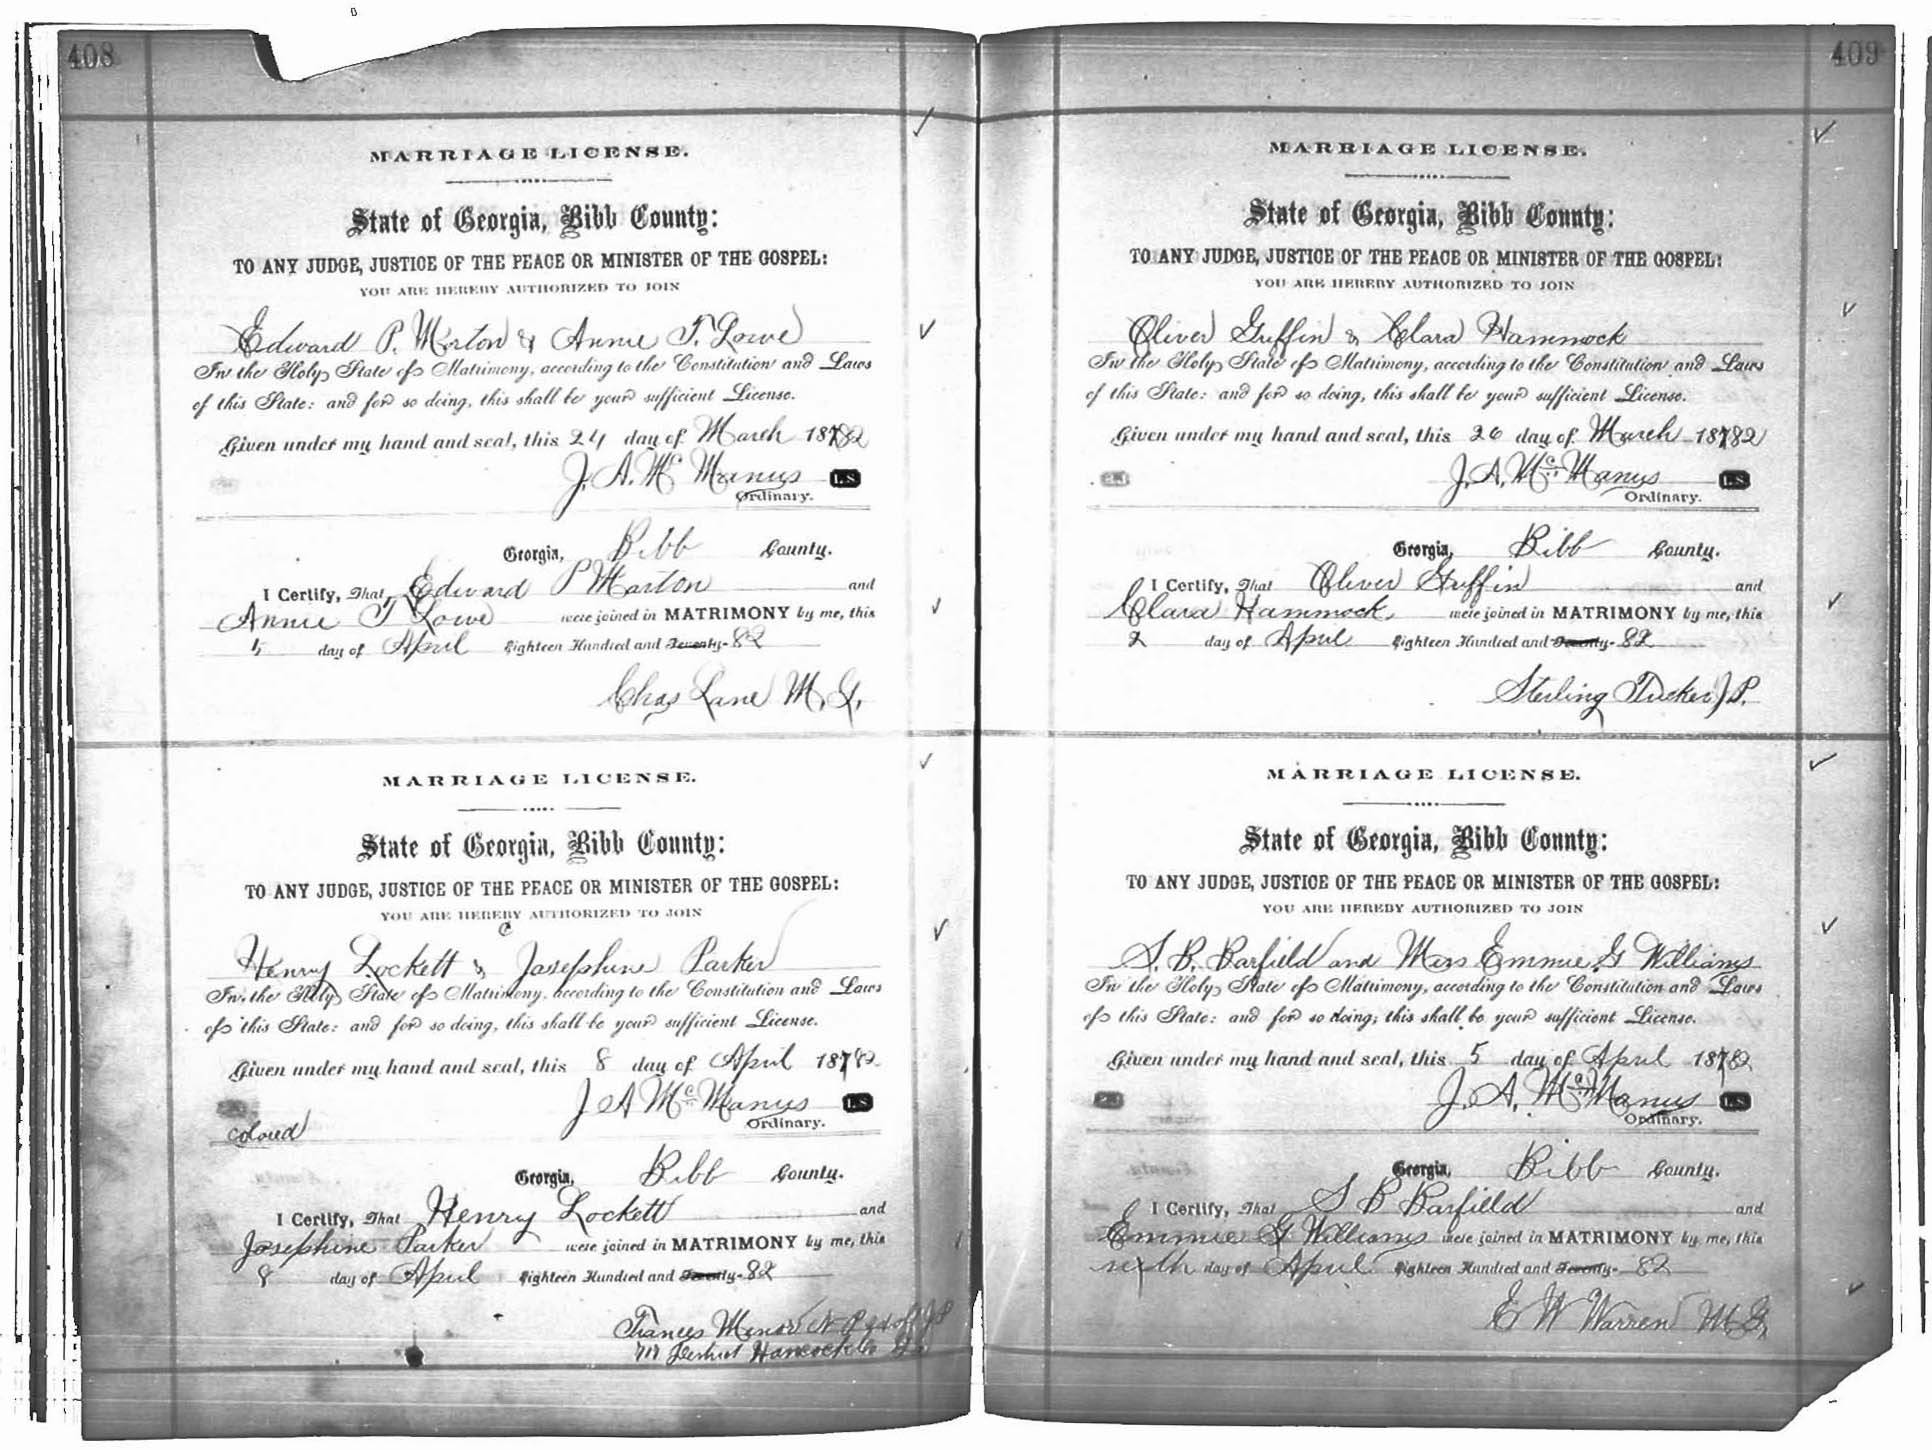 408
MARRIAGE LICENSE.
State of Georgia, Bibb County:
TO ANY JUDGE, JUSTICE OF THE PEACE OR MINISTER OF THE GOSPEL:
YOU ARE HEREBY AUTHORIZED TO JOIN
Edward P. Morton & Annie T. Lowe
In the Holy State of Matrimony, according to the Constitution and Laws
of this State: and for so doing, this shall be your sufficient License.
Given under my hand and seal, this 24 day of March 18782
J. A. Mc Manus L.S.
Ordinary.
Georgia, Bibb County.
I Certify, That Edward P Morton and
Annie T Lowe were joined in MATRIMONY by me, this
day of April Eighteen Hundred and Seventy-82
Chas Lane M. G.
MARRIAGE LICENSE.
State of Georgia, Bibb County:
TO ANY JUDGE, JUSTICE OF THE PEACE OR MINISTER OF THE GOSPEL:
YOU ARE HEREBY AUTHORIZED TO JOIN
Henry Lockett & Josephine Parker
In the Holy State of Matrimony, according to the Constitution and Laws
of this State: and for so doing, this shall be your sufficient License.
Given under my hand and seal, this 8 day of April 18782
J A Mc Manus L.S.
Ordinary.
colored
Georgia, Bibb County.
I Certify, That Henry Lockett and
Josephine Parker were joined in MATRIMONY by me, this
8 day of April Eighteen Hundred and Seventy-82
Frances Minor N P & ex off J P
Hancock Co Ga
409
MARRIAGE LICENSE.
State of Georgia, Bibb County:
TO ANY JUDGE, JUSTICE OF THE PEACE OR MINISTER OF THE GOSPEL:
YOU ARE HEREBY AUTHORIZED TO JOIN
Oliver Griffin & Clara Hammock
In the Holy State of Matrimony, according to the Constitution and Laws
of this State: and for so doing, this shall be your sufficient License.
Given under my hand and seal, this 26 day of March 18782
J. A. Mc Manus L.S.
Ordinary.
Georgia, Bibb County.
I Certify, That Oliver Griffin and
Clara Hammock were joined in MATRIMONY by me, this
2 day of April Eighteen Hundred and Seventy-82
Sterling Tucker J. P.
MARRIAGE LICENSE.
State of Georgia, Bibb County:
TO ANY JUDGE, JUSTICE OF THE PEACE OR MINISTER OF THE GOSPEL:
YOU ARE HEREBY AUTHORIZED TO JOIN
S. B. Barfield and Miss Emmie G Williams
In the Holy State of Matrimony, according to the Constitution and Laws
of this State: and for so doing, this shall be your sufficient License.
Given under my hand and seal, this 5 day of April 18782
J. A. Mc Manus L.S.
Ordinary.
Georgia, Bibb County.
I Certify, That S B Barfield and
Emmie G Williams were joined in MATRIMONY by me, this
sixth day of April Eighteen Hundred and Seventy-82
E W Warren M G